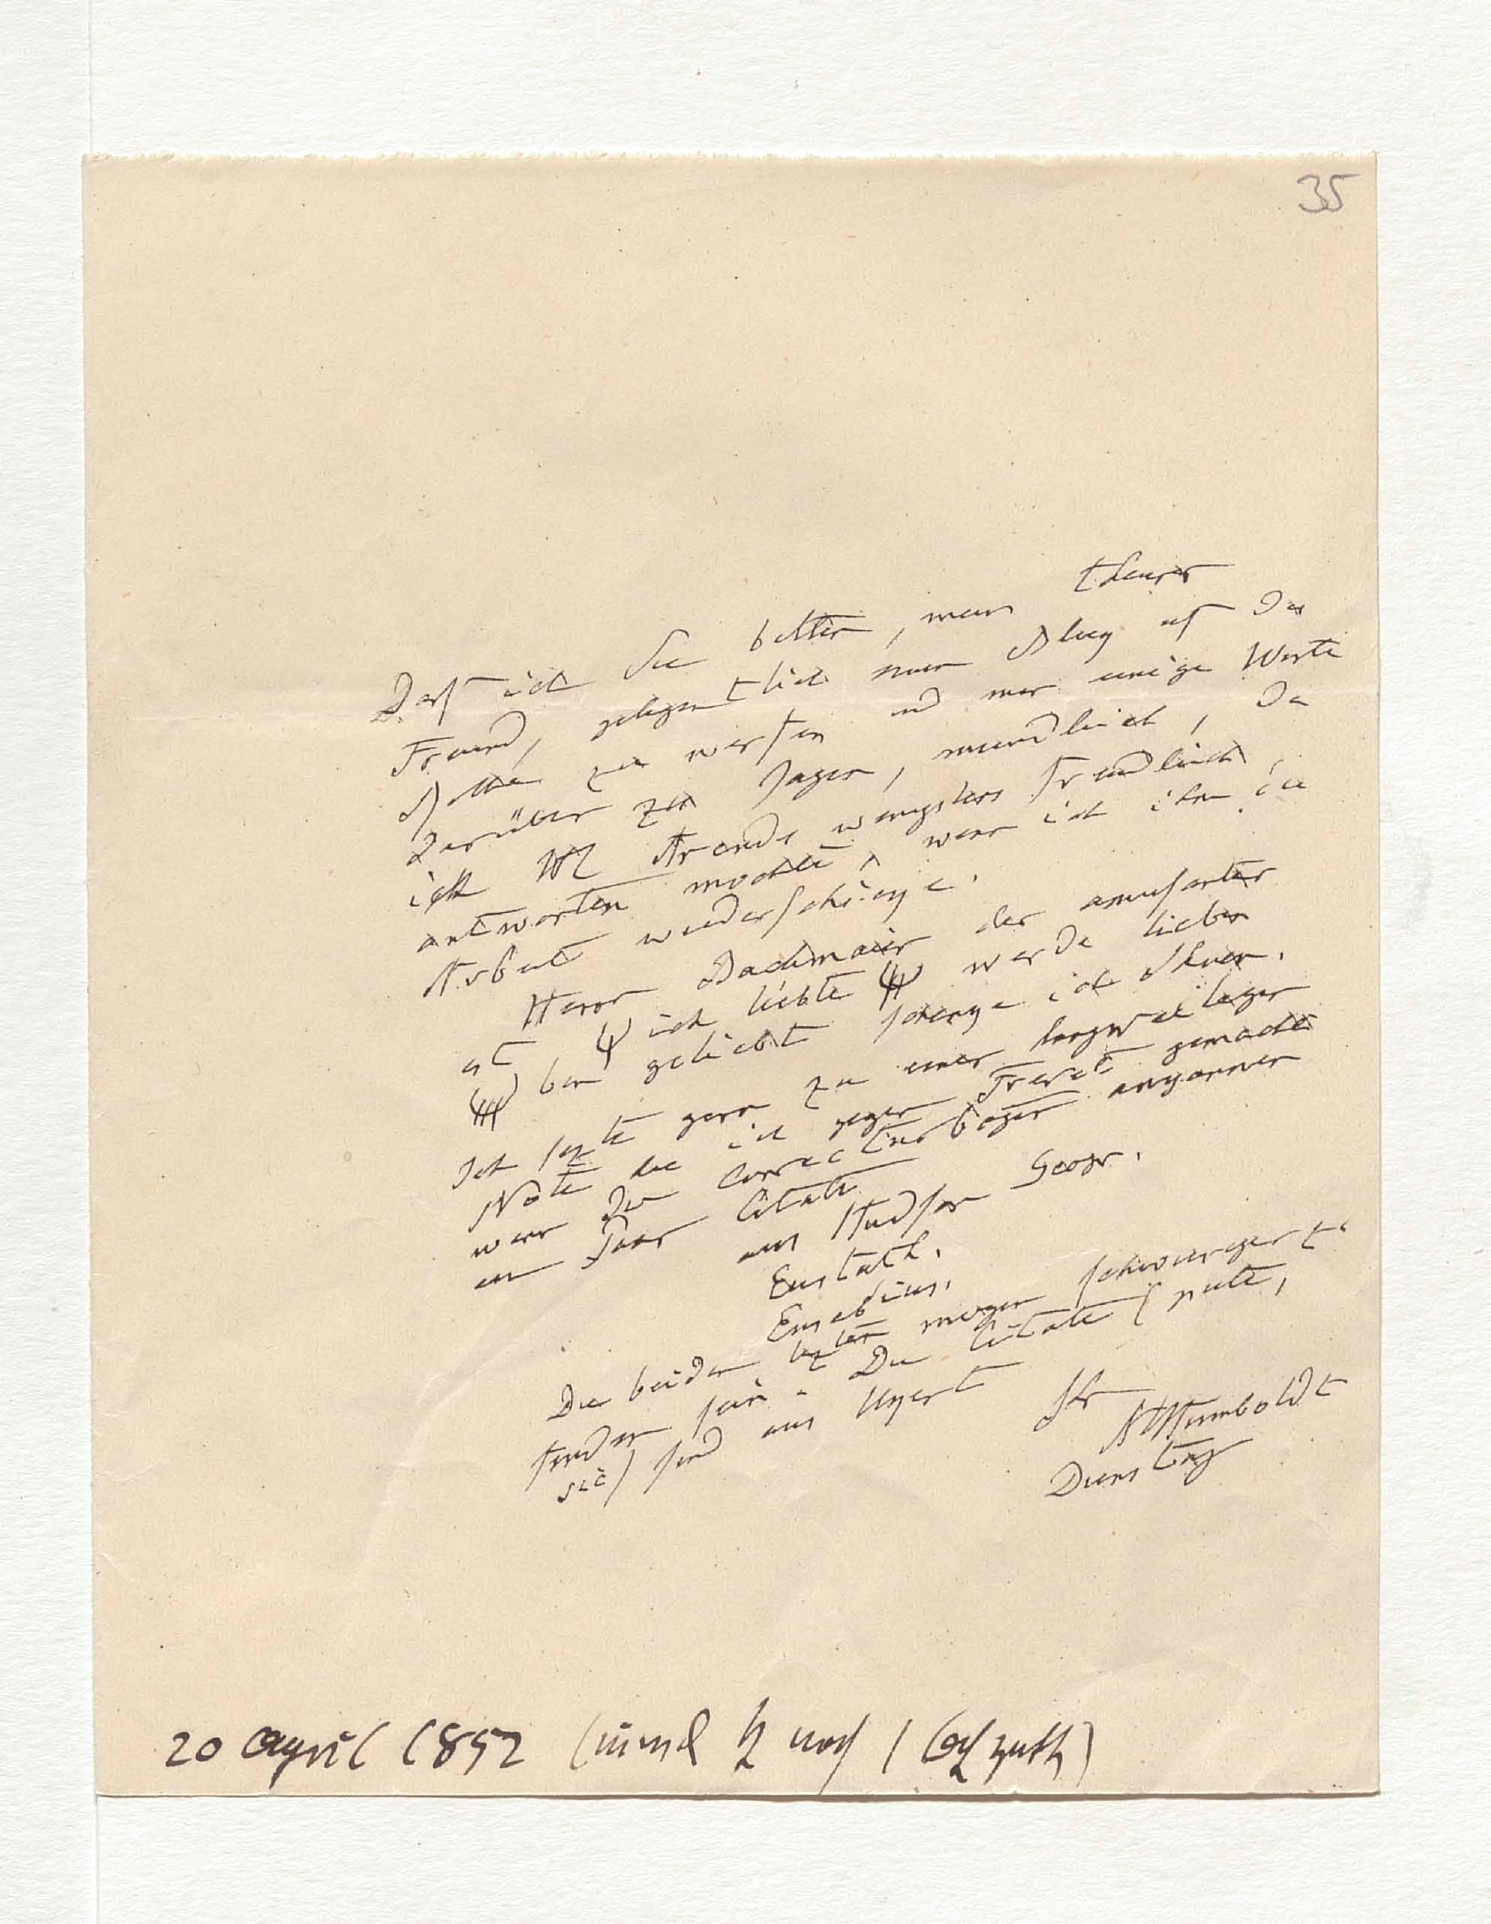 35
Darf ich Sie bitten, mein theurer
Freund, gelegentlich einen Blick auf die
zu werfen und mir einige Worte
darüber zu sagen, mündlich, da
ich H Arends wenigstens freundlich
antworten möchte, wenn ich ihm die
Arbeit wiederschicke.
Herrn Bachmaier der amusanter
ist, ich liebte werde lieben
bin geliebt schenke ich Ihnen.
Ich sezte gern zu einer langweiligen
Note die ich gegen Freret gemacht
wenn die Correcturbogen ankommen
ein Paar Citate
aus Hudson Geogr.
Eustath.
Eusebius.
Die beiden lezten mögen schwieriger zu
finden sein. Die Citate (pute,
sic) sind aus Ukert
Ihr
AHumboldt
Dienstag
20 April 1852